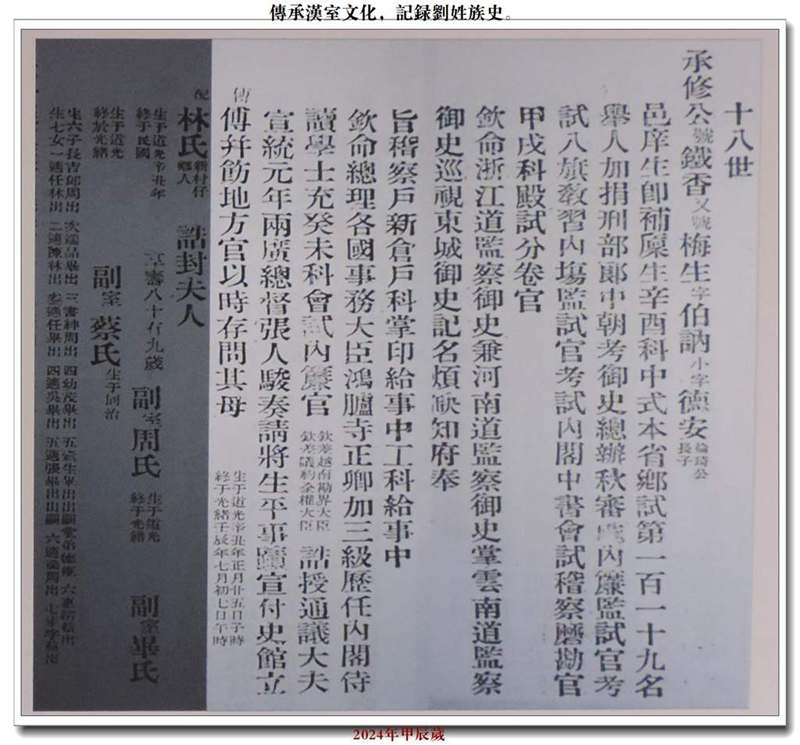 傳承漢室文化，記録劉姓族史。
十八世
承修公號鐵香又號梅生字伯訥小字德安綸琦公長子
邑庠生卽補廩生辛酉科中式本省鄉試第一百一十九名
舉人加捐刑部郎中朝考御史總辦秋審處內簾監試官考
試八旗教習內塲監試官考試內閣中書會試稽察磨勘官
甲戌科殿試分卷官
欽命浙江道監察御史兼河南道監察御史掌雲南道監察
御史巡視東城御史記名煩缺知府奉
旨稽察戶新倉戶科掌印給事中工科給事中
欽命總理各國事務大臣鴻臚寺正卿加三級歷任內閣侍
讀學士充癸未科會試內簾官欽差越南勘界大臣欽差議約全權大臣誥授通議大夫
宣統元年兩廣總督張人駿奏請將生平事蹟宣付史館立
傅幷飭地方官以時存問其母生于道光辛丑年正月廿五日子時終于光緒壬辰年七月初七日午時
傳
配林氏新村仔鄉人誥封夫人
生于道光辛丑年終于民國享壽八十有九歲副室周氏生于道光終于光緒副室畢氏
生于道光終於光緒副室蔡氏生于同治
生六子長
生七女一適任林出二適陳林出
2024年甲辰歲